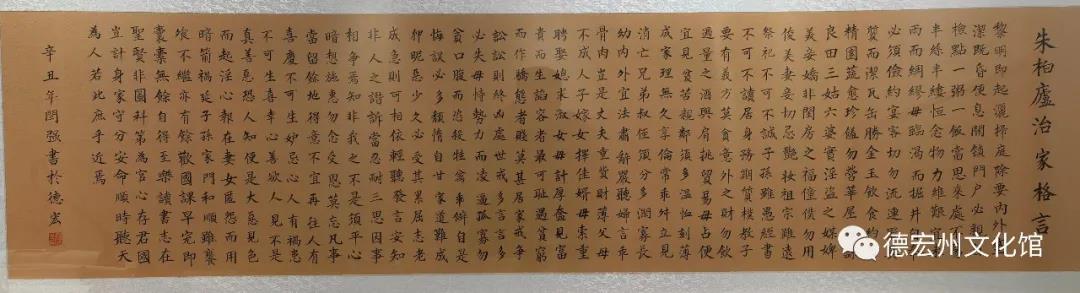 朱柏廬治家格言
黎明即起灑掃庭除要內外
潔既昏便息關鎖門戶必親
檢點一粥一飯當思來處不
半絲半縷恒念物力維艱宜
雨而綢繆毋臨渴而掘井自
必須儉約宴客切勿流連
質而潔瓦缶勝金玉飲食約
精園蔬愈珍饈勿營華屋勿謀
良田三姑六婆實淫盜之媒婢
美妾嬌非閨房之福僮僕勿用
俊美妻妾切忌艷妝祖宗雖遠
祭祀不可不誠子孫雖愚經書
不可不讀居身務期質樸教子
要有義方莫貪意外之財勿飲
過量之酒與肩挑貿易毋占便
宜見貧苦親鄰須多溫恤刻薄
成家理無久享倫常乖舛立見
消亡兄弟叔侄須分多潤寡長
幼內外宜法肅辭嚴聽婦言乖
骨肉豈是丈夫重貲財薄父母
不成人子嫁女擇佳婿毋索重
聘娶媳求淑女毋計厚奩見富
貴而生諂容者最可恥遇貧窮
而作驕態者賤莫甚居家戒爭
訟訟則終凶處世戒多言言多
必失毋恃勢力而凌逼孤寡勿
貪口腹而恣殺牲禽乖僻自是
悔誤必多頹惰自甘家道難成
狎昵惡少久必受其累屈志老
成急則可相依輕聽發言安知
非人之譖訴當忍耐三思因事
相爭焉知非我之不是須平心
暗想施惠勿念受恩莫忘凡事
當留餘地得意不宜再往人有
喜慶不可生妒忌心人有禍患
不可生喜幸心善欲人見不是
真善惡恐人知便是大惡見色
而起淫心報在妻女匿怨而用
暗箭禍延子孫家門和順雖饔
飧不繼亦有餘歡國課早完即
囊橐無餘自得至樂讀書志在
聖賢非圖科第為官心存君國
豈計身家守分安命順時聽天
為人若此庶乎近焉
辛丑年閆強書於德宏
德宏州文化馆